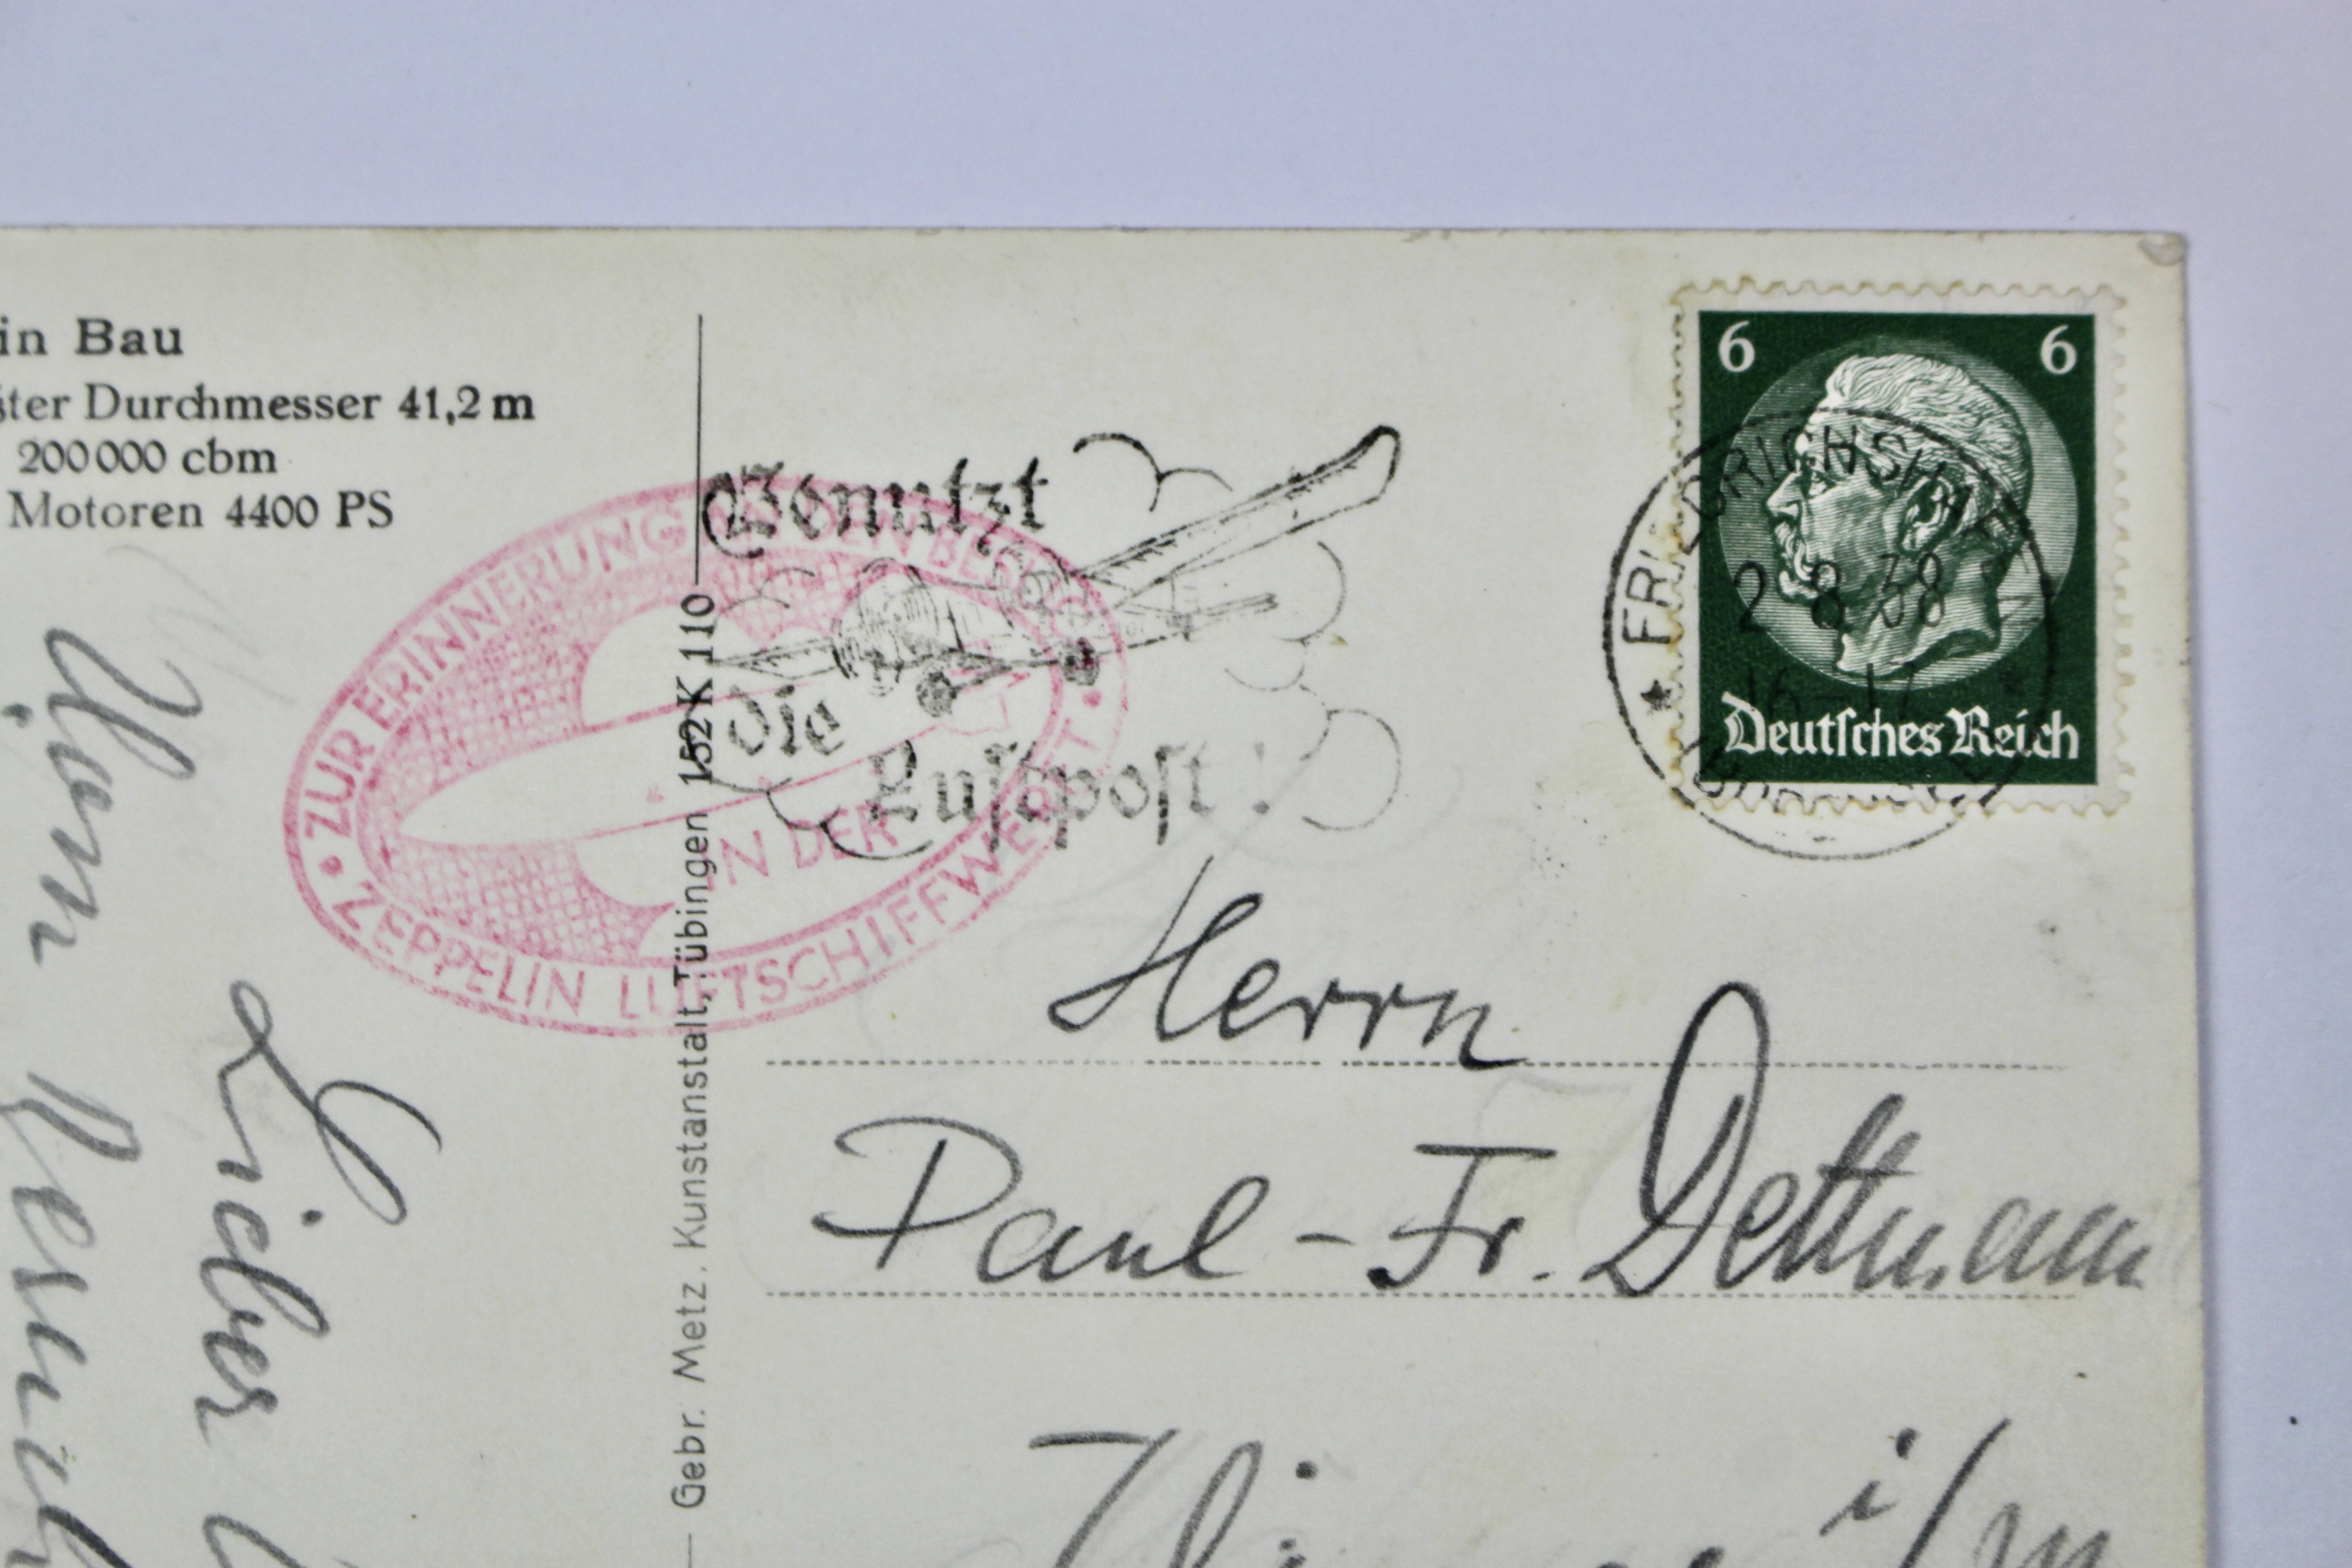 in Bau
ster Durchmesser 41,2 m
200 000 cbm
Motoren 4400 PS
Vom
Besuch
Lieber
ZUR ERINNERUNG AN DEN BESUCH
IN DER
ZEPPELIN LUFTSCHIFFWERFT
Gebr. Metz, Kunstanstalt, Tübingen 152 K 110
Benutzt
die
Luftpost!
6 6
Deutsches Reich
FRIEDRICHSHAFEN
2 8 38
16–17
Herrn
Paul - Fr. Dettmann
i/